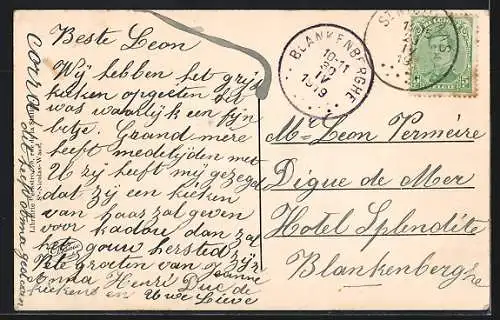 Beste Leon
Wij hebben het grijs
kieken opgeten het
was waarlijk een fijn
betje. Grand mere
heeft medelijden met
U zij heeft mij gezegd
dat zij een kieken
van haar zal geven
voor kadou dan zal
het gouw hersted zijn
Vele groeten van Jeanne
Henri Duc de
kiekens en Uwe Lieve
Cora
BLANKENBERGHE
10-11
30
IV
1919
M. Leon Verméire
Digue de Mer
Hotel Splendite
Blankenberghe